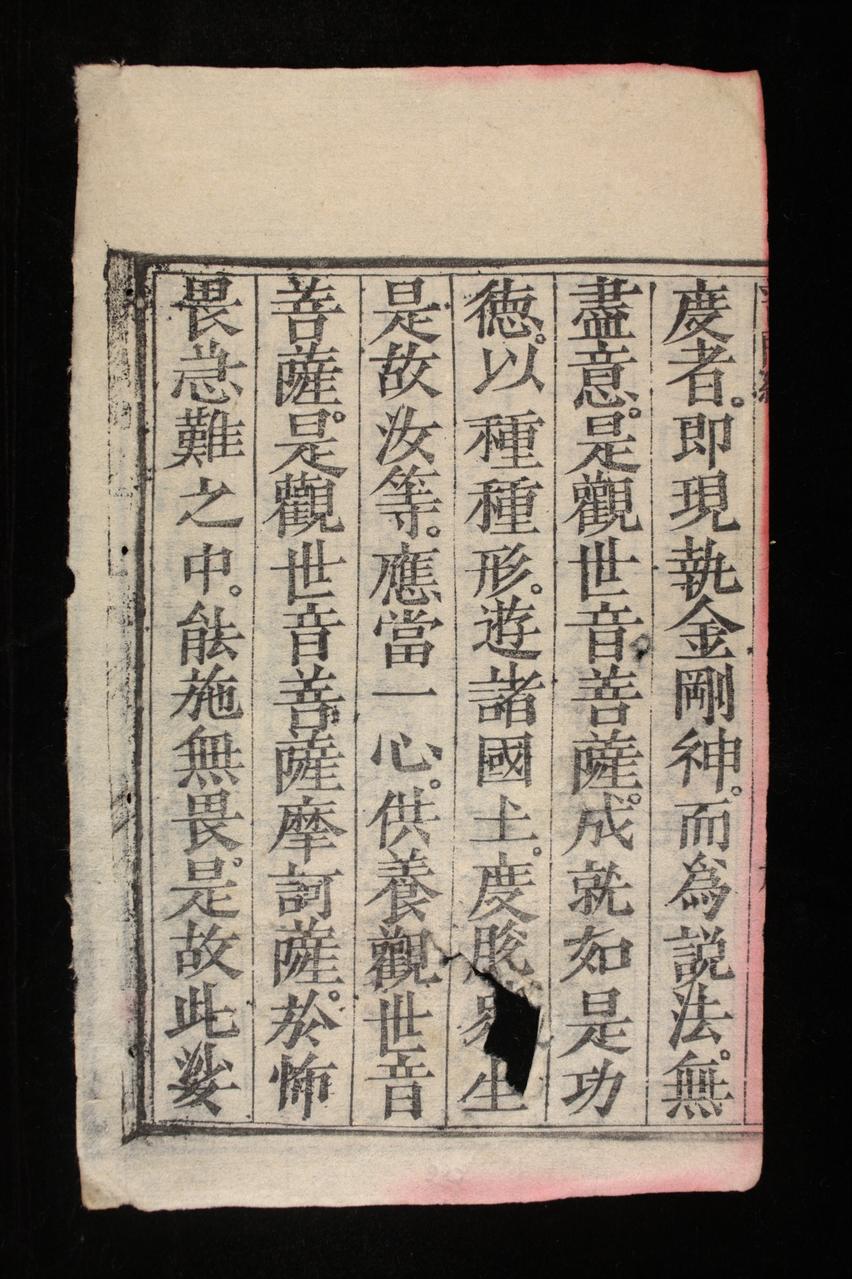 度者。即現執金剛神。而為說法。無
盡意。是觀世音菩薩。成就如是功
德。以種種形。遊諸國土。度脫眾生
是故汝等。應當一心。供養觀世音
菩薩。是觀世音菩薩摩訶薩。於怖
畏急難之中。能施無畏。是故此娑